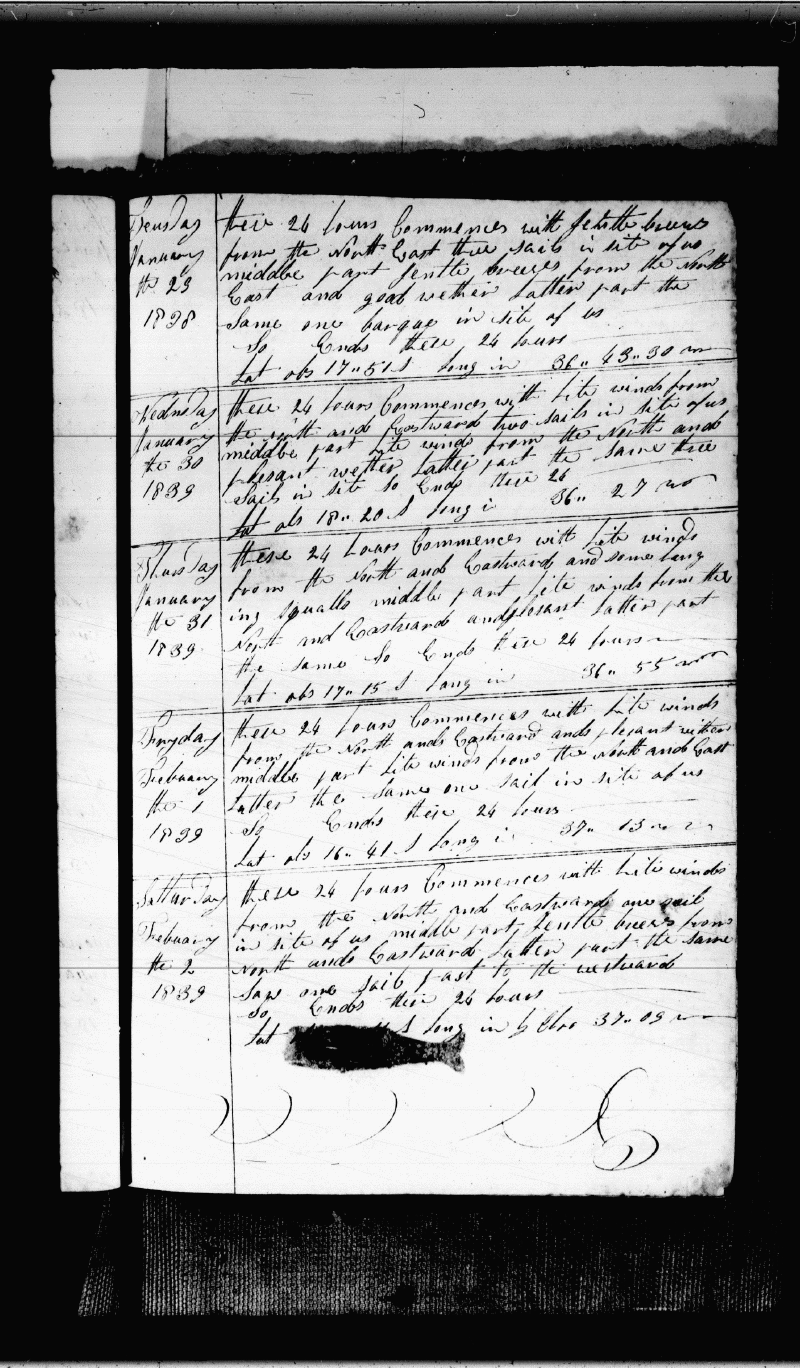 Teusday
January
the 29
1838
these 24 hours Commences with jentle breess
from the North East three sails in site of us
middle part jentle breezes from the North
East and good wether Latter part the
Same one barque in site of us
So Ends these 24 hours
Lat obs 17" 51 S Long in 36" 43" 30
Wednsday
January
the 30
1839
these 24 hours Commences with Lite winds from
the North and Eastward two sails in site of us
middle part Lite winds from the North and
plesant wether Latter part the same three
Sails in site So Ends these 26
Lat obs 18" 20 S Long i 36" 27
Thursday
January
the 31
1839
these 24 hours Commences with Lite winds
from the North and Eastward and some
ing squalls middle part Lite winds from the
North and Eastward and plesant Latter part
the same So Ends these 24 hours
Lat obs 17" 15 S Long in 36" 55
Fryday
February
the 1
1839
these 24 hours Commences with Lite winds
from the North and Eastward and plesant wether
middle part Lite winds from the North and East
Latter the same one sail in site of us
So Ends these 24 hours
Lat obs 16" 41 S Long i 37" 13
Satturday
Febuary
the 2
1839
these 24 hours Commences with Lite winds
from the North and Eastward one sail
in site of us middle part jentle breess from
North and Eastward Latter part the same
Saw one sail past to the westward
So Ends these 24 hours
Lat S Long in by Chro 37" 09